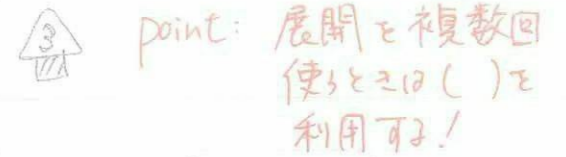 3 point: 展開を複数回
使うときは( )を
利用する!